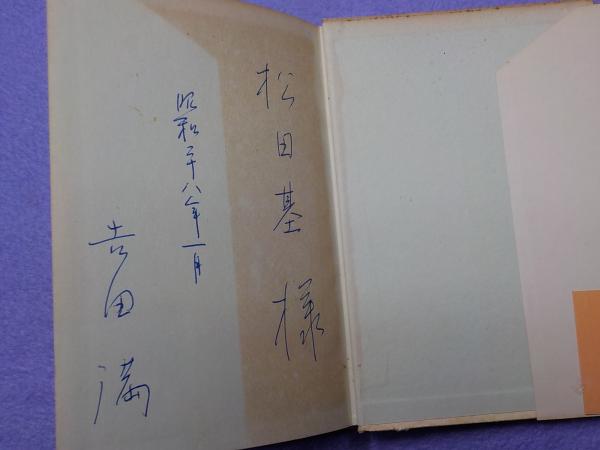 松田基様
昭和二十八年一月
吉田満